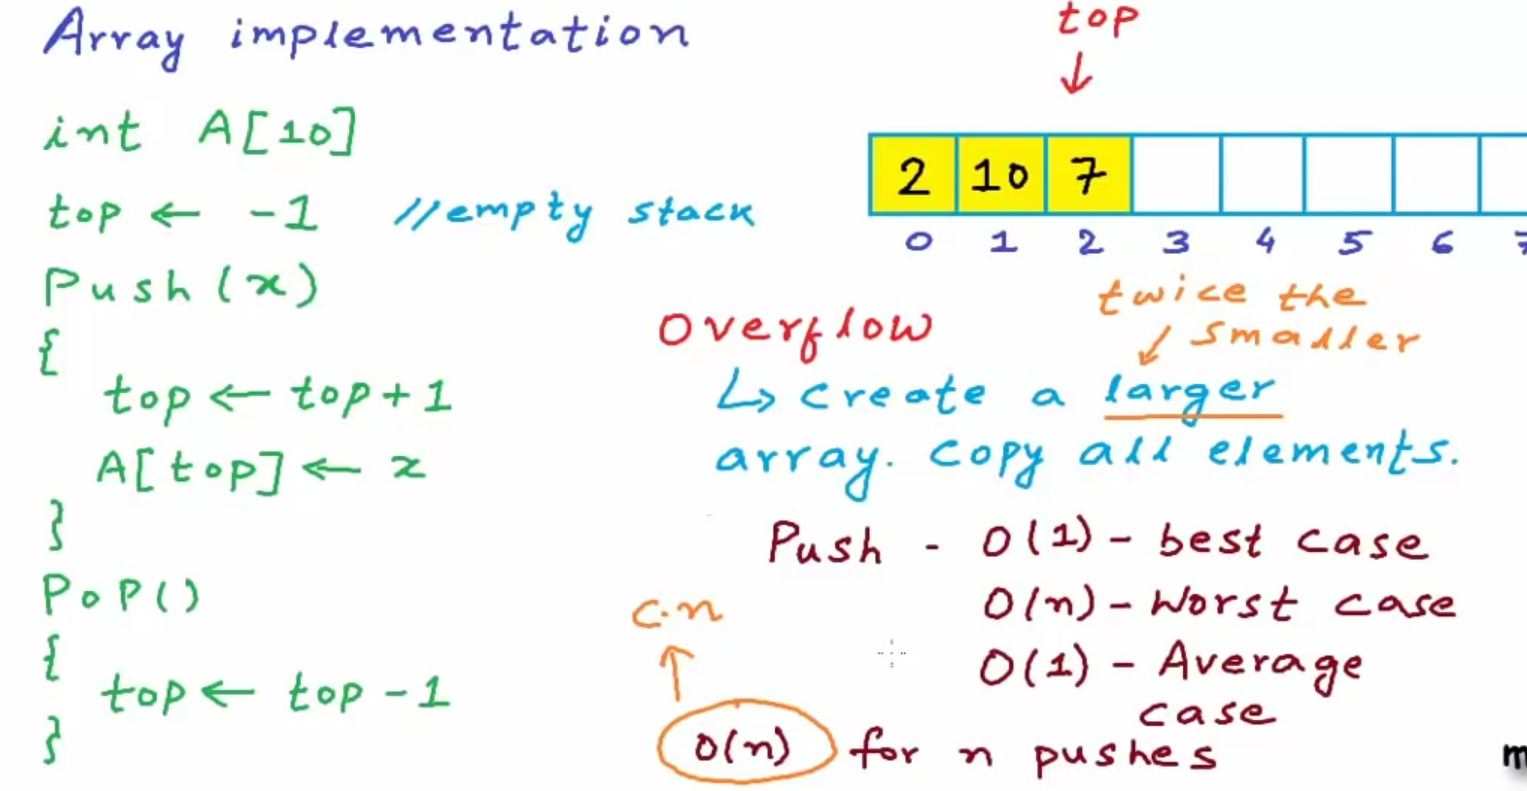 Array implementation
int A[10]
top ← -1 //empty stack
Push(x)
{
top ← top+1
A[top] ← x
}
Pop()
{
top ← top -1
}
top
↓
2 10 7
0 1 2 3 4 5 6
twice the
smaller
Overflow
↳ create a larger
array. Copy all elements.
Push - O(1) - best case
O(n) - Worst case
O(1) - Average
case
c.n
↑
O(n) for n pushes
m